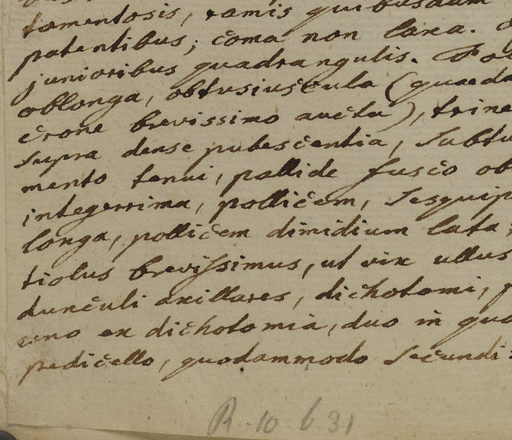 tomentosis, ramis quibusdam
patentibus; coma non laxa.
junioribus quadrangulis. Fol
oblonga, obtusiuscula (quaeda
crone brevissimo aucta), trine
supra dense pubescentia, subtu
mento tenui, pallide fusco ob
integerrima, pollicem, sesquip
longa, pollicem dimidium lata;
tiolus brevissimus, ut vix ullus
dunculi axillares, dichotomi, p
uno ex dichotomia, duo in quo
pedicello, quodammodo secundi:
R. 10 b 31